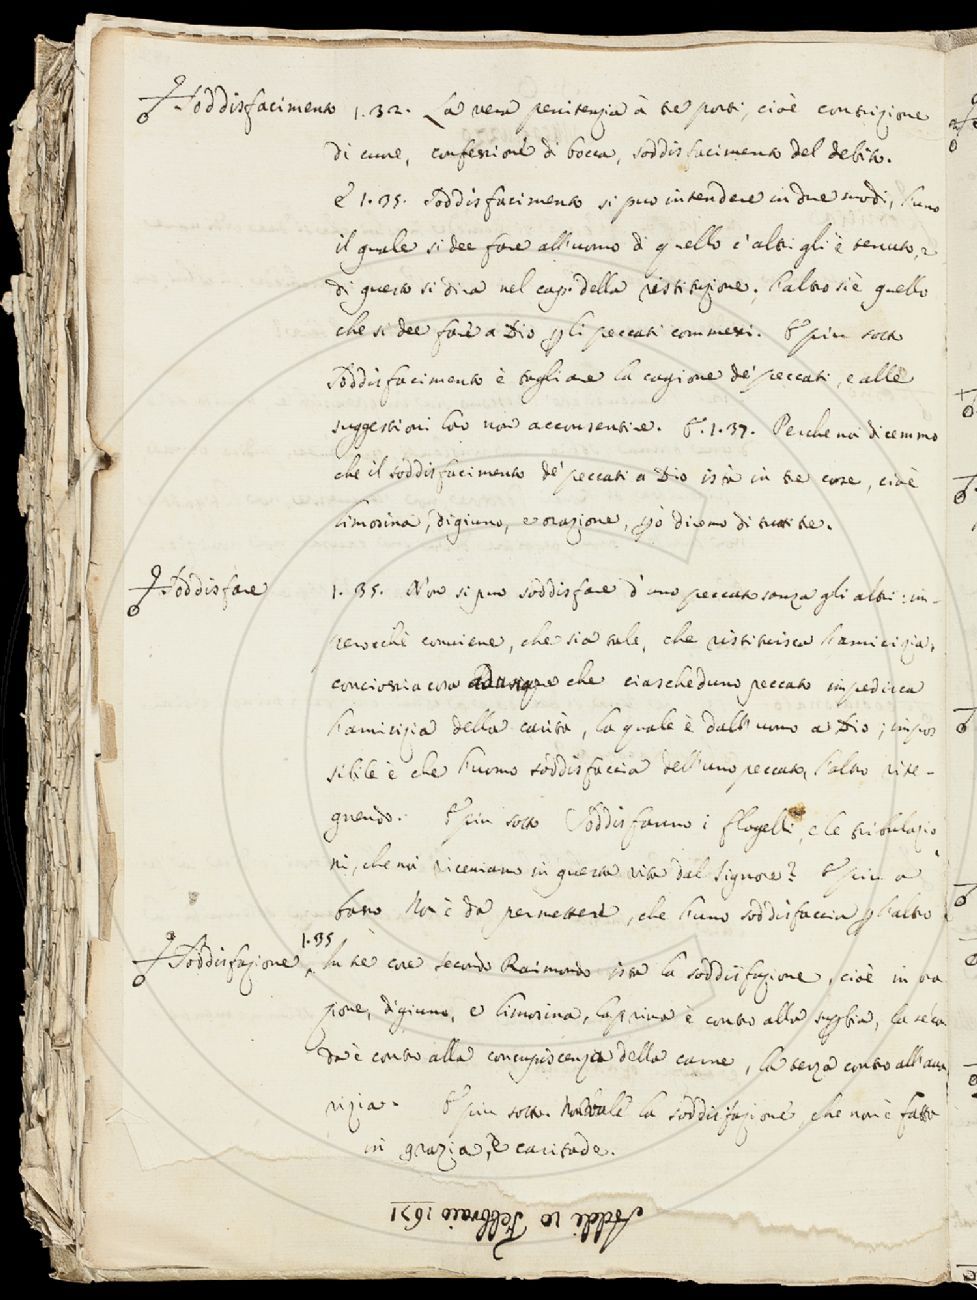 Soddisfacimento 1.32. La vera penitenzia à tre parti, cioè contrizione
di cuore, confessione di bocca, soddisfacimento del debito.
E 1.35. Soddisfacimento si può intendere in due modi, l'uno
il quale si dee fare all'uomo di quello c'altri gli è tenuto, e
di questo si dirà nel cap. della restituzione, l'altro si è quello
che si dee fare a Dio p li peccati commessi. E più sotto
Soddisfacimento è tagliare la cagione de' peccati, e alle
suggestioni loro non acconsentire. E. 1.37. Perchè noi dicemmo
che il soddisfacimento de' peccati a Dio istà in tre cose, cioè
limosina, digiuno, e orazione, pò diremo di tutte tre.
Soddisfare 1.35. Non si può soddisfare d'uno peccato sanza gli altri: im-
perocchè conviene, che sia tale, che ristituisca l'amicizia,
conciossia cosa che ciascheduno peccato impedisca
l'amicizia della carità, la quale è dall'uomo a Dio; impos
sibile è che l'uomo soddisfaccia dell'uno peccato, l'altro rite-
gnendo. E più sotto Soddisfanno i flagelli, e le tribulazio
ni, che noi riceviamo in questa vita dal Signore? E più a
basso Non è da permettere, che l'uno soddisfaccia p l'altro
Soddisfazione 1.35 In tre cose secondo Raimondo istà la soddisfazione, cioè in ora
zione, digiuno, e limosina, la prima è contro alla suppbia, la secon
da è contro alla concupiscenzia della carne, la terza contro all'ava
rizia. E più sotto. Non vale la soddisfazione, che non è fatta
in grazia, e caritade.
Addi 10 Febbraio 1671